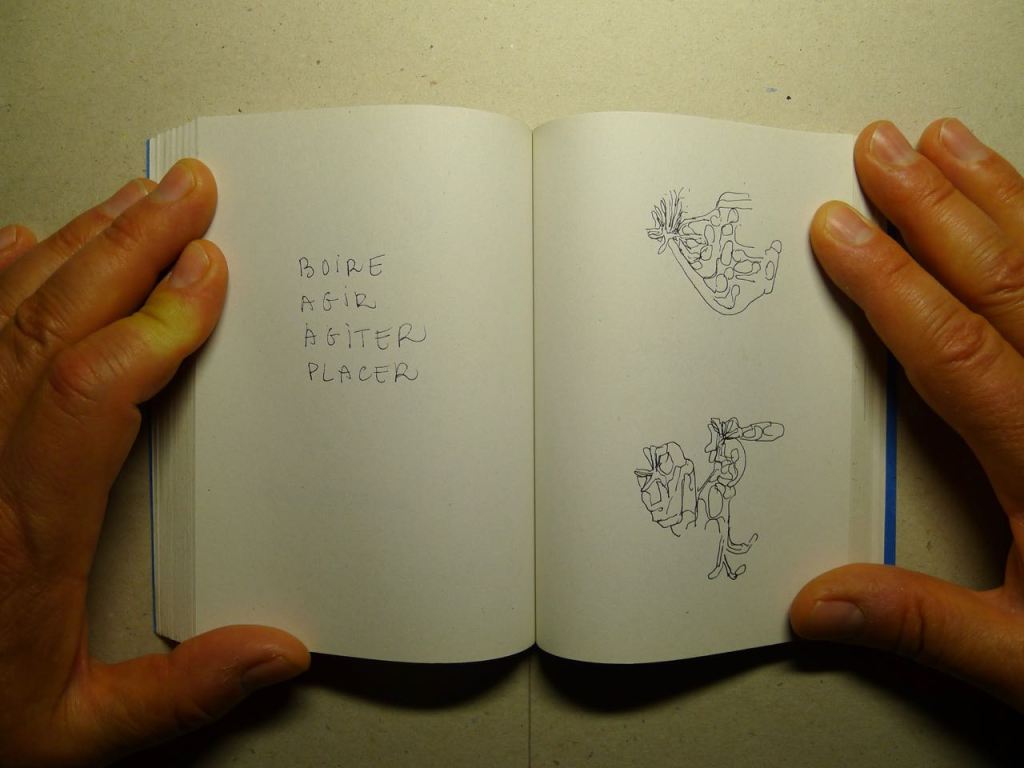 BOIRE
AGIR
AGITER
PLACER